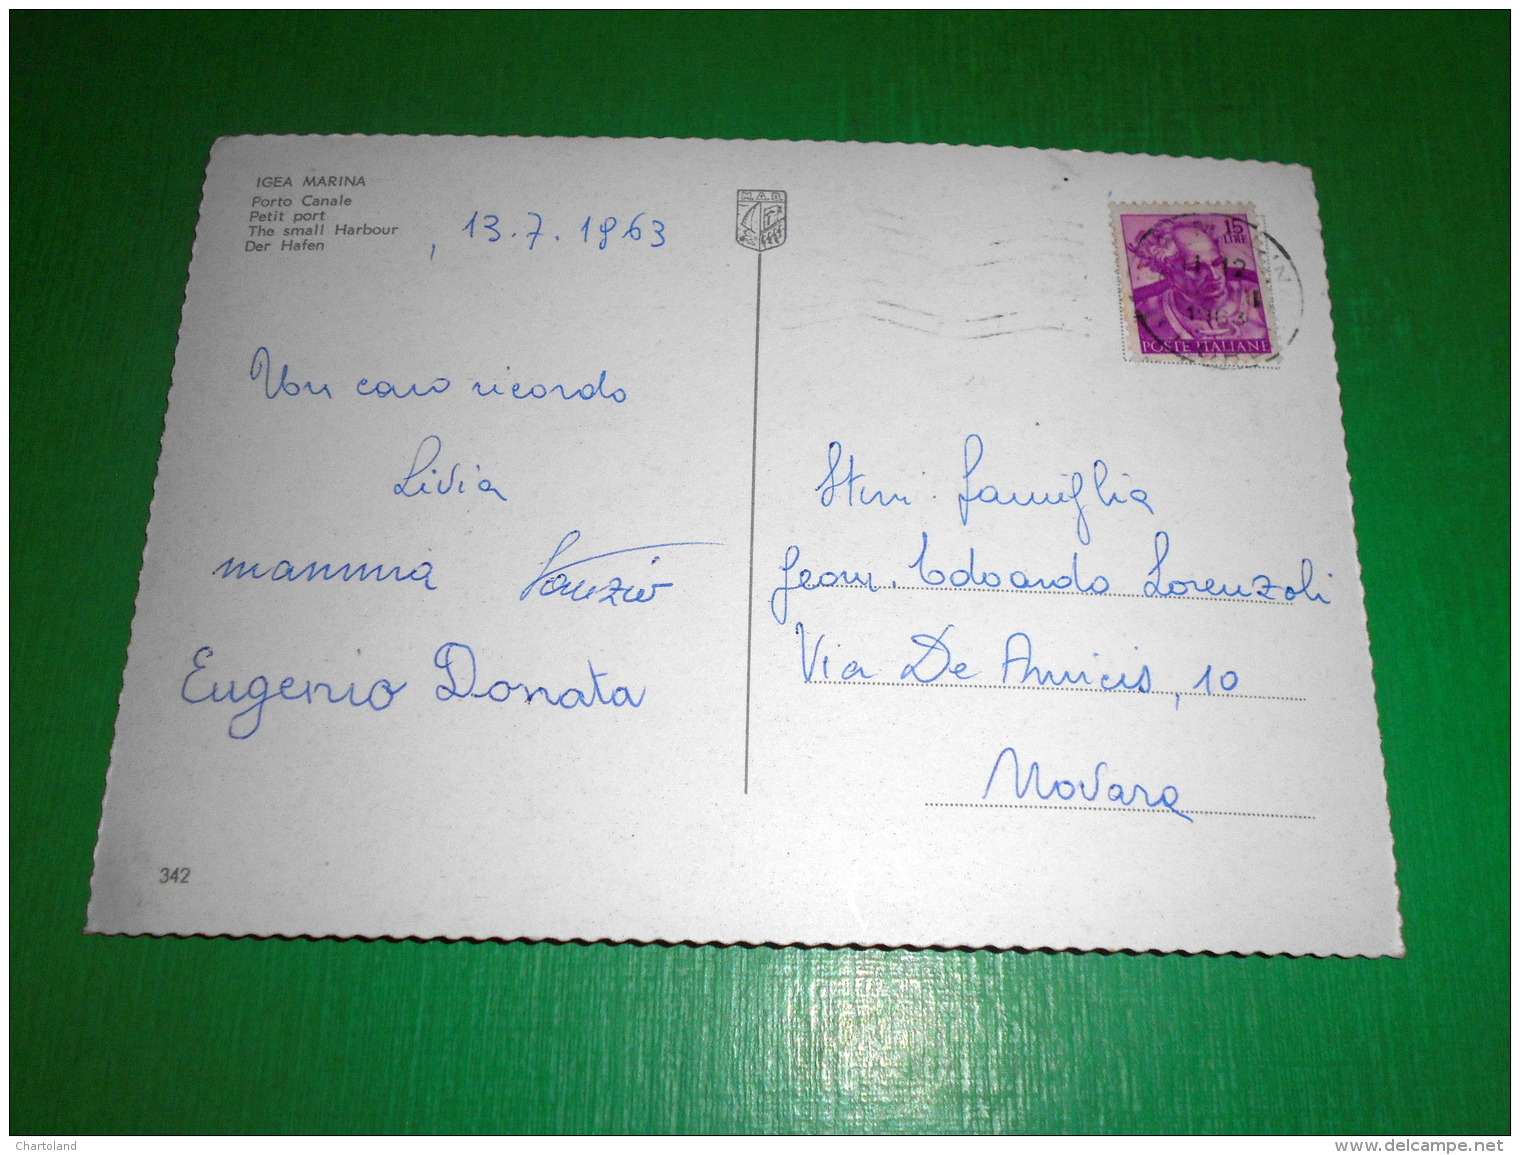 IGEA MARINA
Porto Canale
Petit port
The small Harbour
Der Hafen
, 13.7.1963
M.A.R.
15
LIRE
11-12
1963
POSTE ITALIANE
Un caro ricordo
Livia
mamma
Eugenio Donata
Stim. famiglia
Geom. Edoardo Lorenzoli
Via De Amicis, 10
Novara
342
Chartoland
www.delcampe.net